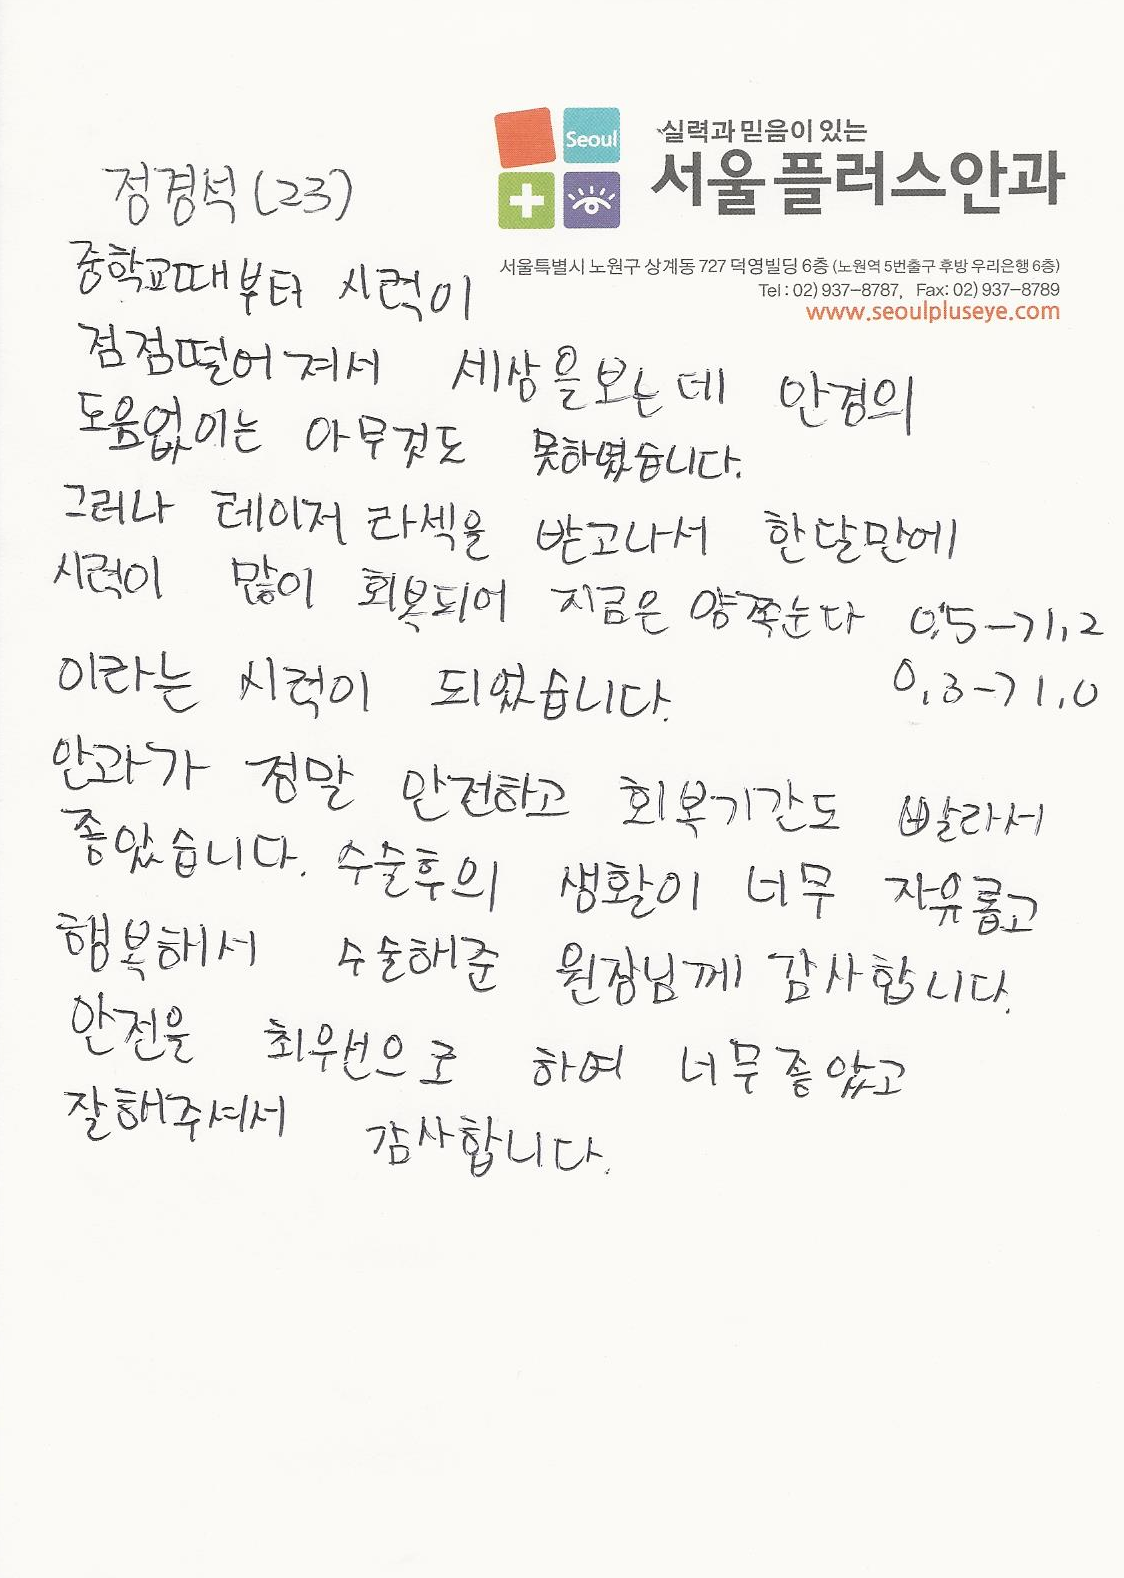 Seoul
실력과 믿음이 있는
서울플러스안과
서울특별시 노원구 상계동 727 덕영빌딩 6층 (노원역 5번출구 후방 우리은행 6층)
Tel : 02) 937-8787, Fax: 02) 937-8789
www.seoulpluseye.com
정경석(23)
중학교때부터 시력이
점점떨어져서 세상을보는데 안경의
도움없이는 아무것도 못하였습니다.
그러나 레이저 라섹을 받고나서 한달만에
시력이 많이 회복되어 지금은 양쪽눈다 0.5→1.2
이라는 시력이 되었습니다. 0.3→1.0
안과가 정말 안전하고 회복기간도 빨라서
좋았습니다. 수술후의 생활이 너무 자유롭고
행복해서 수술해준 원장님께 감사합니다.
안전을 최우선으로 하여 너무좋았고
잘해주셔서 감사합니다.